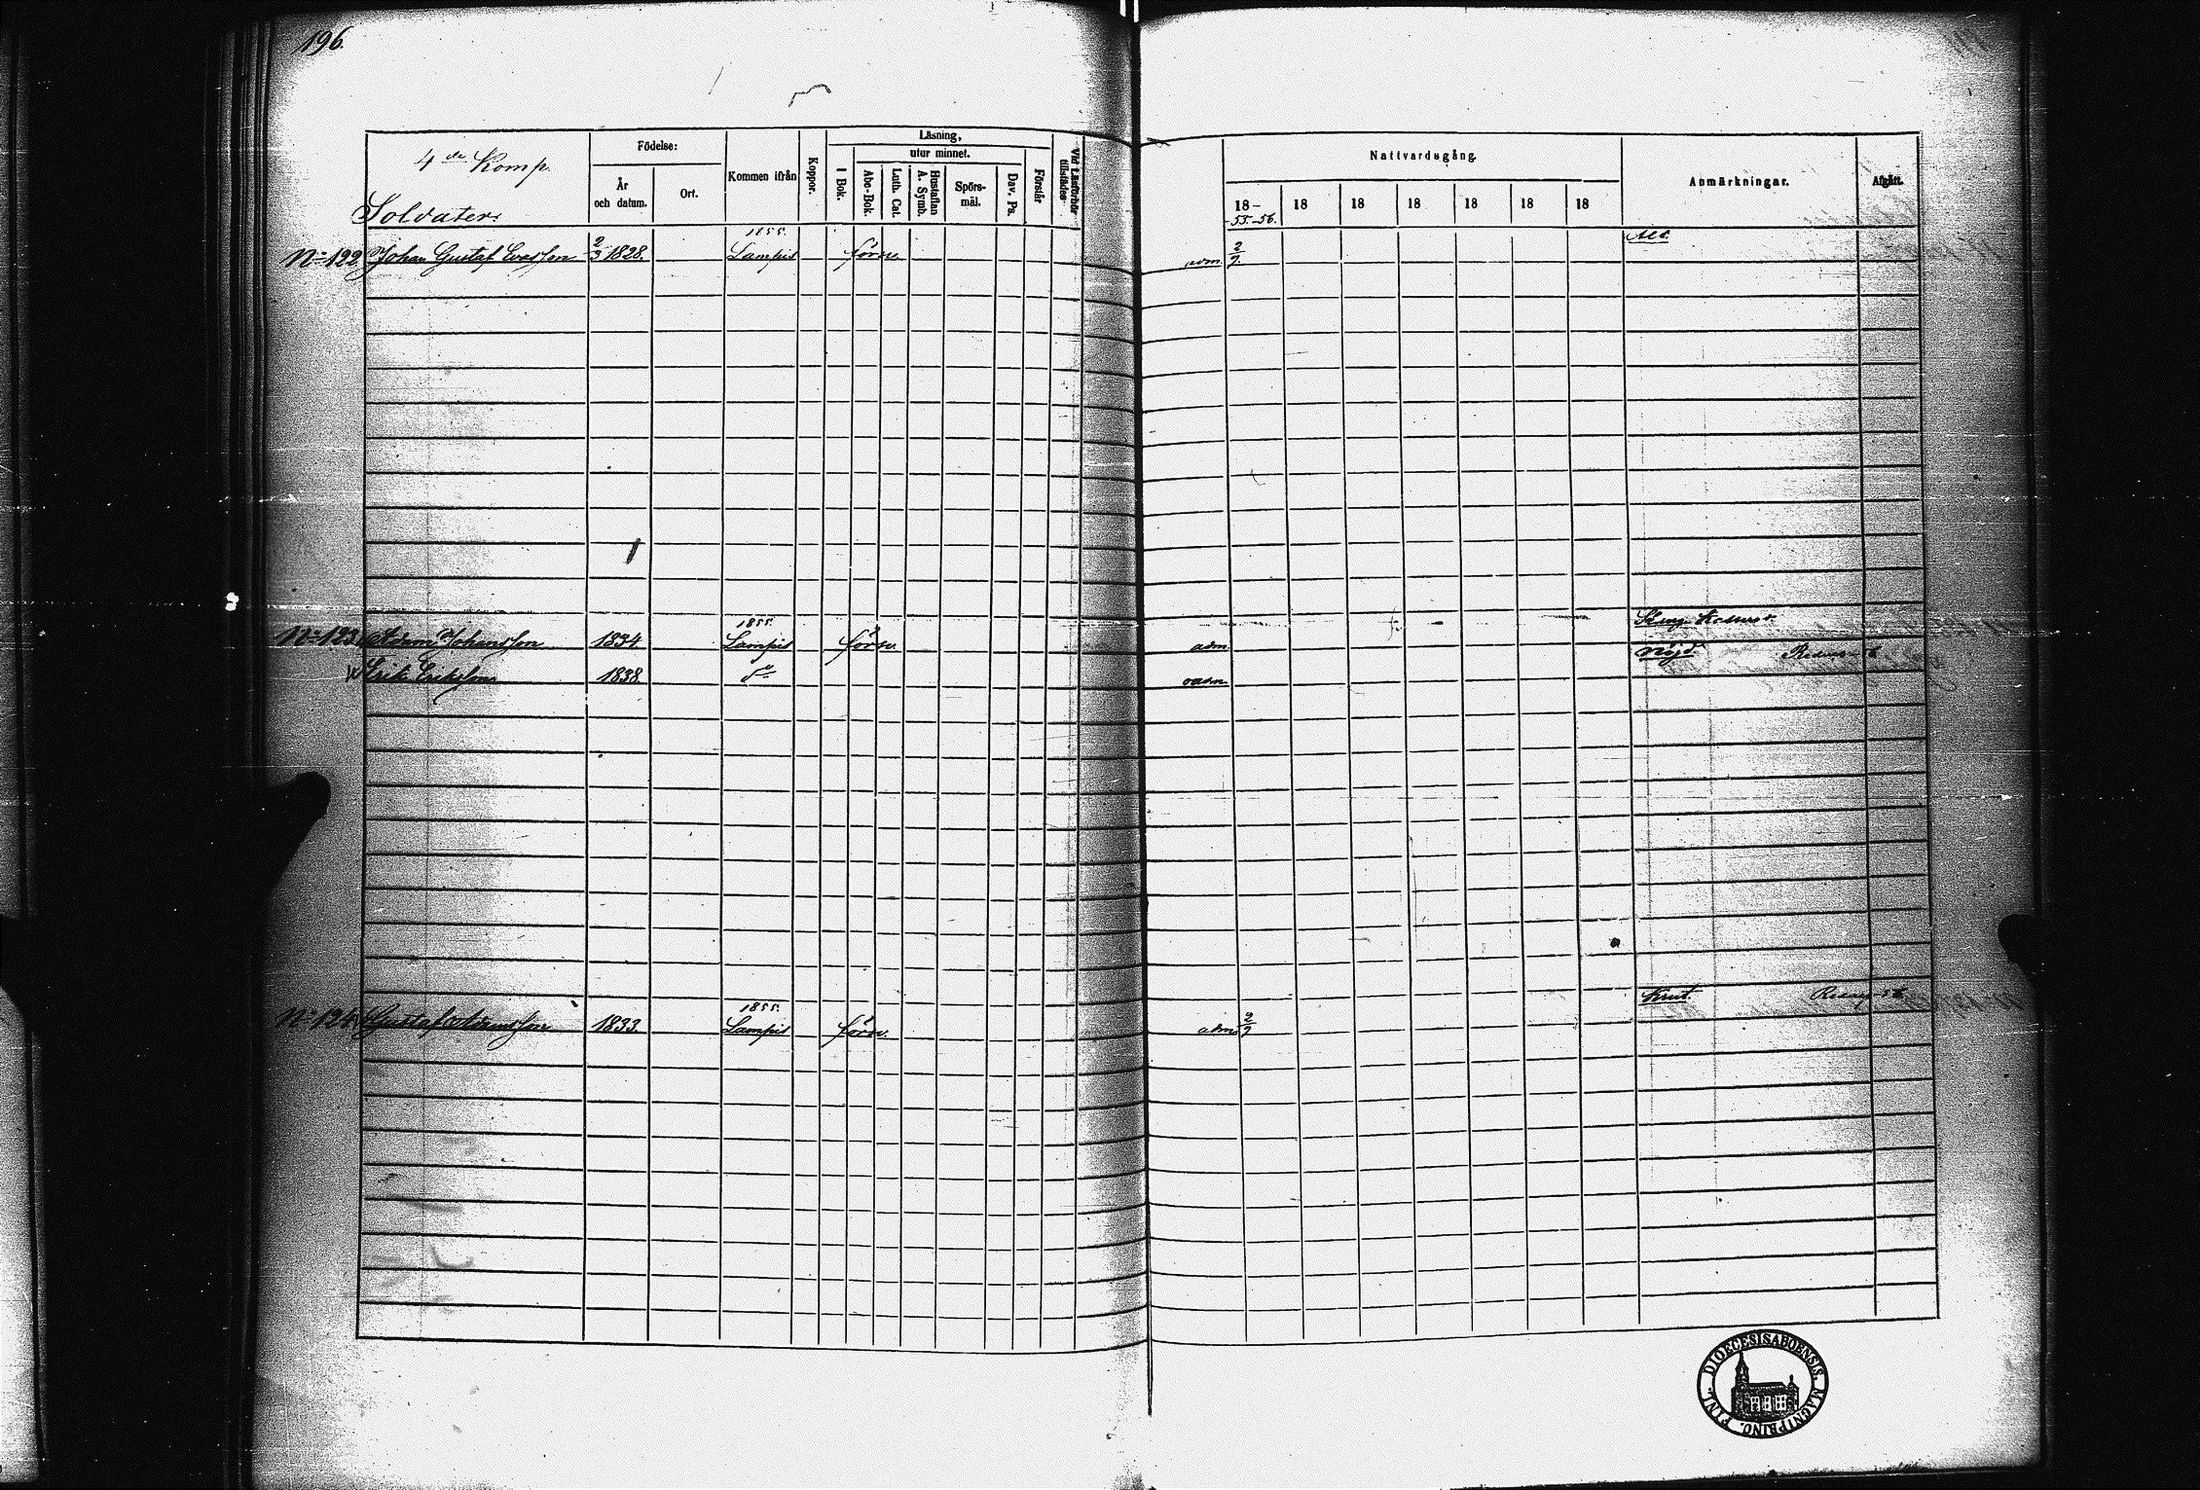 196.
4de Komp.
Soldater.
Födelse:
År och datum.
Ort.
Kommen ifrån
Koppor.
Läsning,
utur minnet.
I Bok.
Abc-Bok.
Luth. Cat.
Hustaflan A. Symb.
Spörs-mål.
Dav. Ps.
Förstår
Vid Läsförhör tillstädes
Nattvardsgång.
18-55-56. 18 18 18 18 18 18
Anmärkningar.
Afgått.
1855.
No 122. Johan Gustaf Evasson 2/3 1828. Lampis förra adm. 2/7.
1855.
No 123. Adam Johansson 1834 Lampis förra. adm.
Nöjd.
Erik Eriksson 1838. do oadm.
Knut.
1855.
No 124. Gustaf Adamsson 1833. Lampis förra. adm 2/7
FINL. DIOECESIS ABOENSIS. MAGNI PRINC.